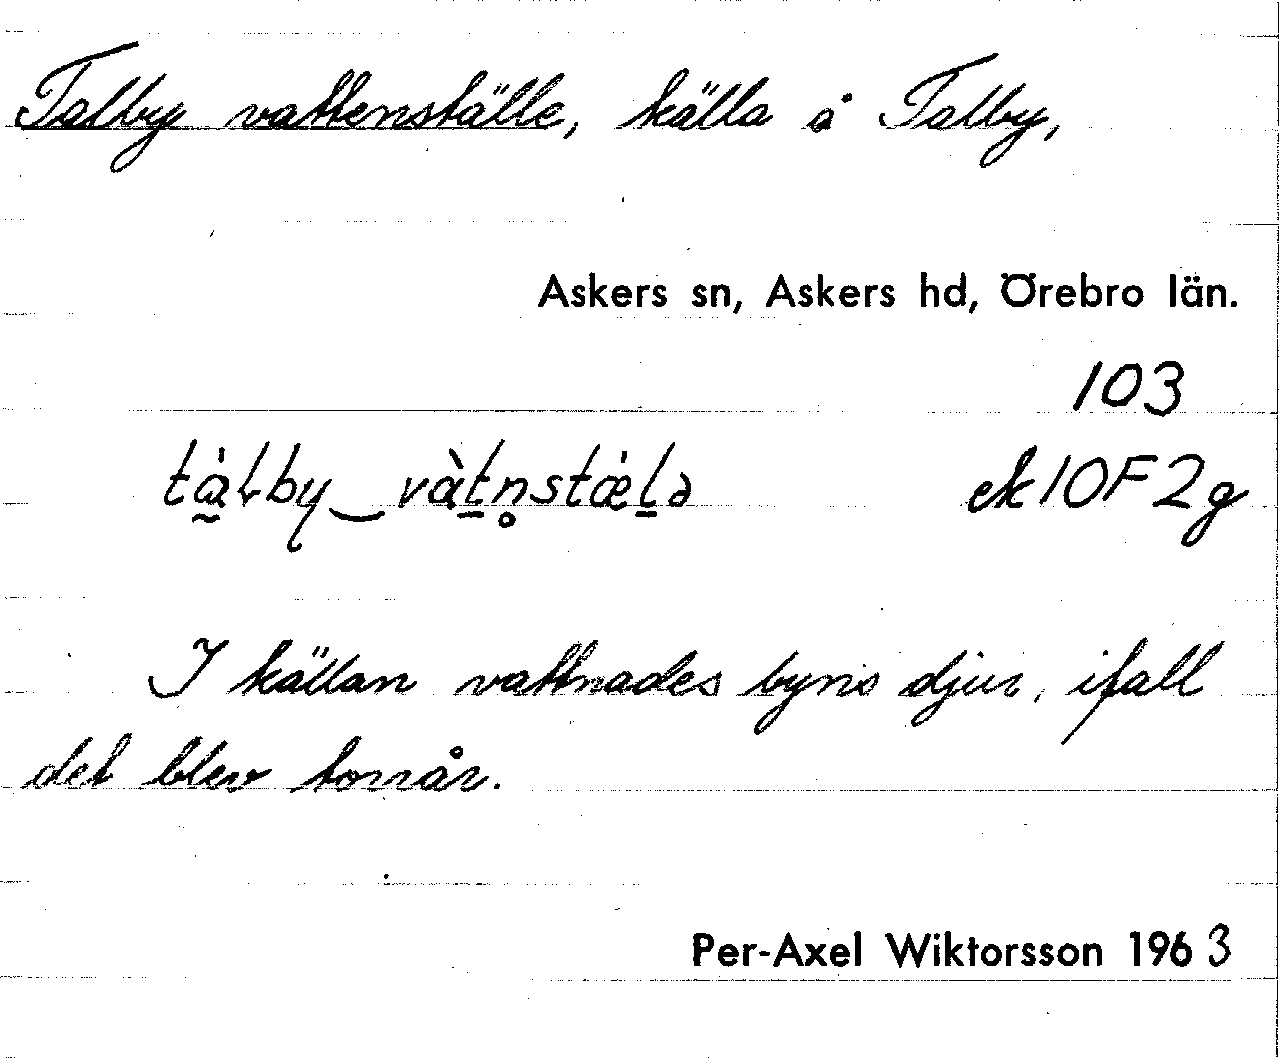 Talby vattenställe, källa å Talby,
Askers sn, Askers hd, Örebro län.
103
tàlby‿vàtn̥stæ̀lə ek 10F2g
I källan vattnades byns djur, ifall
det blev torrår.
Per-Axel Wiktorsson 1963